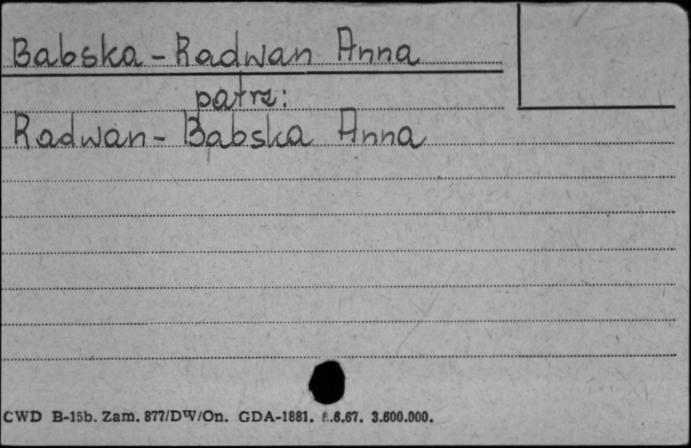 Babska - Radwan Anna
patrz:
Radwan - Babska Anna
CWD B-15b. Zam. 877/DW/On. GDA-1881. 6.67. 3.600.000.